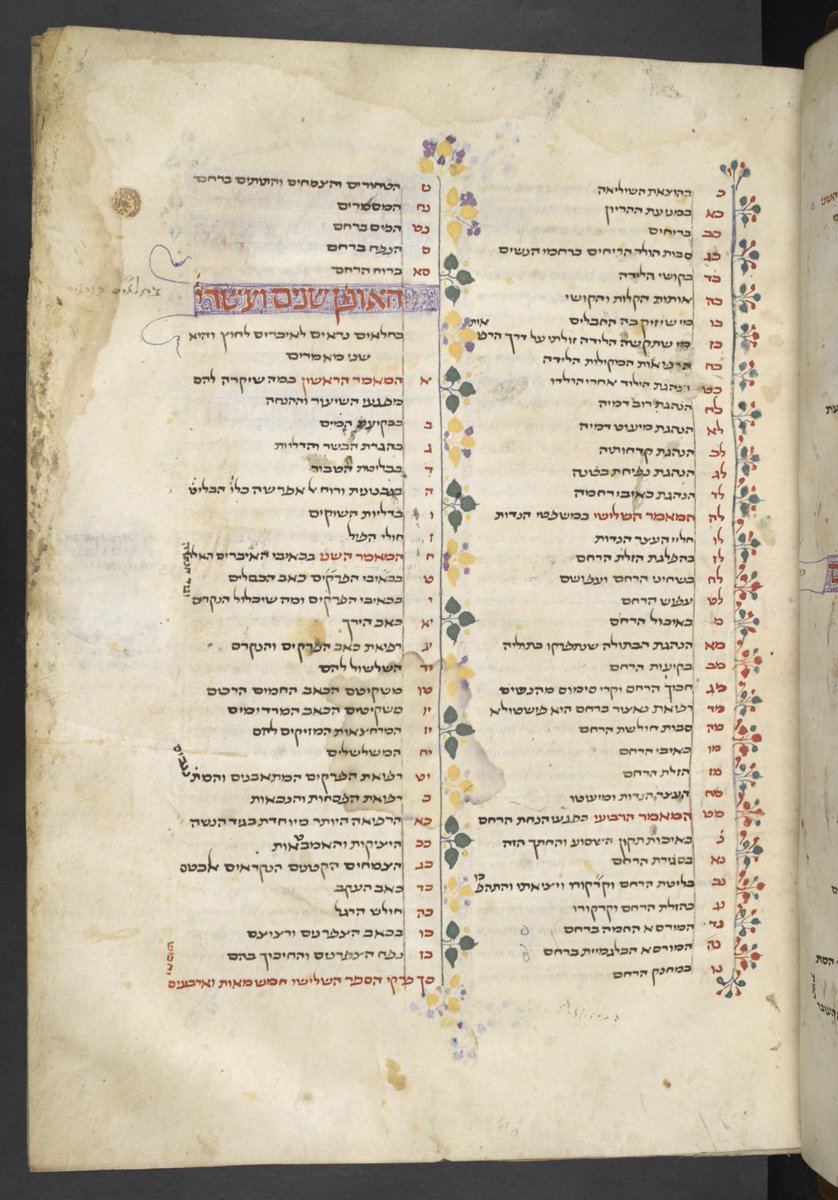 כ בהוצאת השיליאה
כא במניעת ההריון
כב בריחים
כג סבות הולד הריחים ברחמי הנשים
כד בקושי הלידה
כה אותות הקלות והקושי
כו במי שיזיק בה החבלים
כז מי שתקשה הלידה זולתי על דרך הרפ אות
כח הרפואות המקילות הלידה
כט הנהגת הילוד אחרי הולדו
ל הנהגת רוב דמיה
לא הנהגת מיעוט דמיה
לב הנהגת קדחותיה
לג הנהגת נפיחת בטנה
לד הנהגת כאיבי רחמה
לה המאמר השלישי במשפטי הנדות
לו חליי העצר הנדות
לז בהפלגת הזלת הרחם
לח בשחיט הרחם ועפושם
לט עפוש הרחם
מ באיכול הרחם
מא הנהגת הבתולה שנתפרקו בתוליה
מב בקיעות הרחם
מג חכוך הרחם
מד רפואת נאצור ברחם הוא פישטולא
מה סבות חולשת הרחם
מו כאיבי הרחם
מז הזלת הרחם
מח העצר הנדות ומיעוטו
מט המאמר הרביעי בפגעי הנחת הרחם
נ באיכות תקון השסוע והחתך הזה
נא בסגירת הרחם
נב בליטת הרחם וקרקורו ויציאתו והתהפ כו
נג בהזלת הרחם וקרקורו
נד המורסא החמה ברחם
נה המורסא הבלגמיית ברחם
נו במחנק הרחם
הטחורים והצמחים והתותים ברחם
נח המסמרים
נט המים ברחם
ס הנפח ברחם
סא ברוח הרחם
האופן שנים ועשרי
בחלאים נראים לאיברים לחוץ והיא
שני מאמרים
א המאמר הראשון במה שיקרה להם
מפגעי השיעור וההנחה
ב בבקיעת המים
ג בהגרת הבשר והדליות
ד בבליטת הטבור
ה בגבנונית ורוח
ו בדליות השוקים
ז חולי הפיל
ח המאמר השני בכאיבי האיברים האלו
ט בכאיבי הפרקים כאב הכפלים
י בכאיבי הפרקים ומה שיכלול הנקרס
יא כאב הירך
יג רפואת כאב הפרקים והנקרס
יד השלשול להם
טו משקיטם הכאב החמים הרטם
יו משקיטים הכאב המרדימים
יז המרחצאות המזיקים להם
יח המשלשלים
יט רפואת הפרקים המתאבנים והמת
כ רפואת הפסחות והנכאות
כא הרפואה היותר מיוחדת בגיד הנשה
כב היציקות והאמבטאות
כג הצמחים הקטנים הנקראים
כד כאב העקב
כה חולש הרגל
כו בכאב הצפרנים ורציצם
כז נפח הצפרנים והחיכוך בהם
סך פרקי הספר השלישי חמש מאות וארבעים